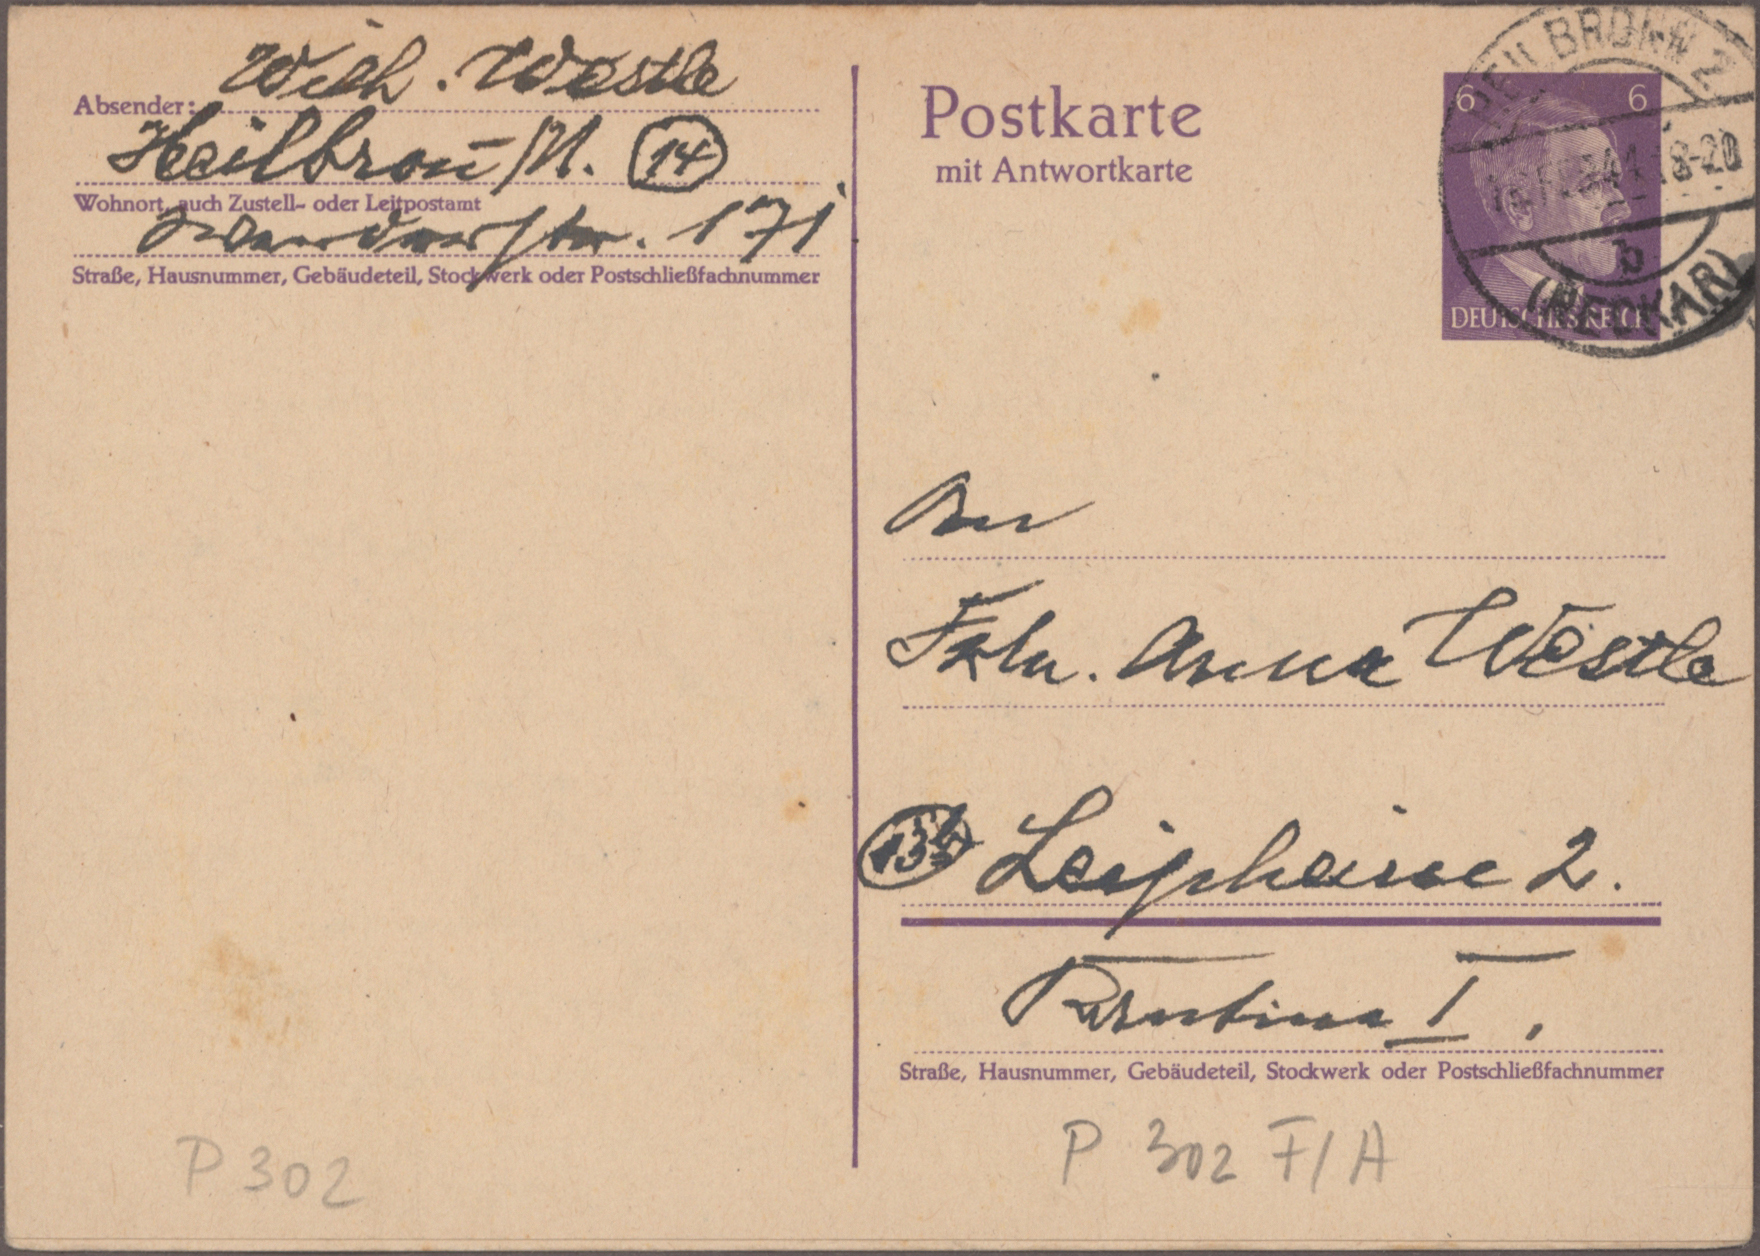 Wilh. Westle
Absender:
Heilbron̄/N. 14
Wohnort, auch Zustell- oder Leitpostamt
171
Straße, Hausnummer, Gebäudeteil, Stockwerk oder Postschließfachnummer
Postkarte
mit Antwortkarte
6 6
DEUTSCHES REICH
HEILBRONN 2
18-20
b
(NECKAR)
An
Frln. Anna Westle
13b Leipheim 2.
I,
Straße, Hausnummer, Gebäudeteil, Stockwerk oder Postschließfachnummer
P 302
P 302 F/A